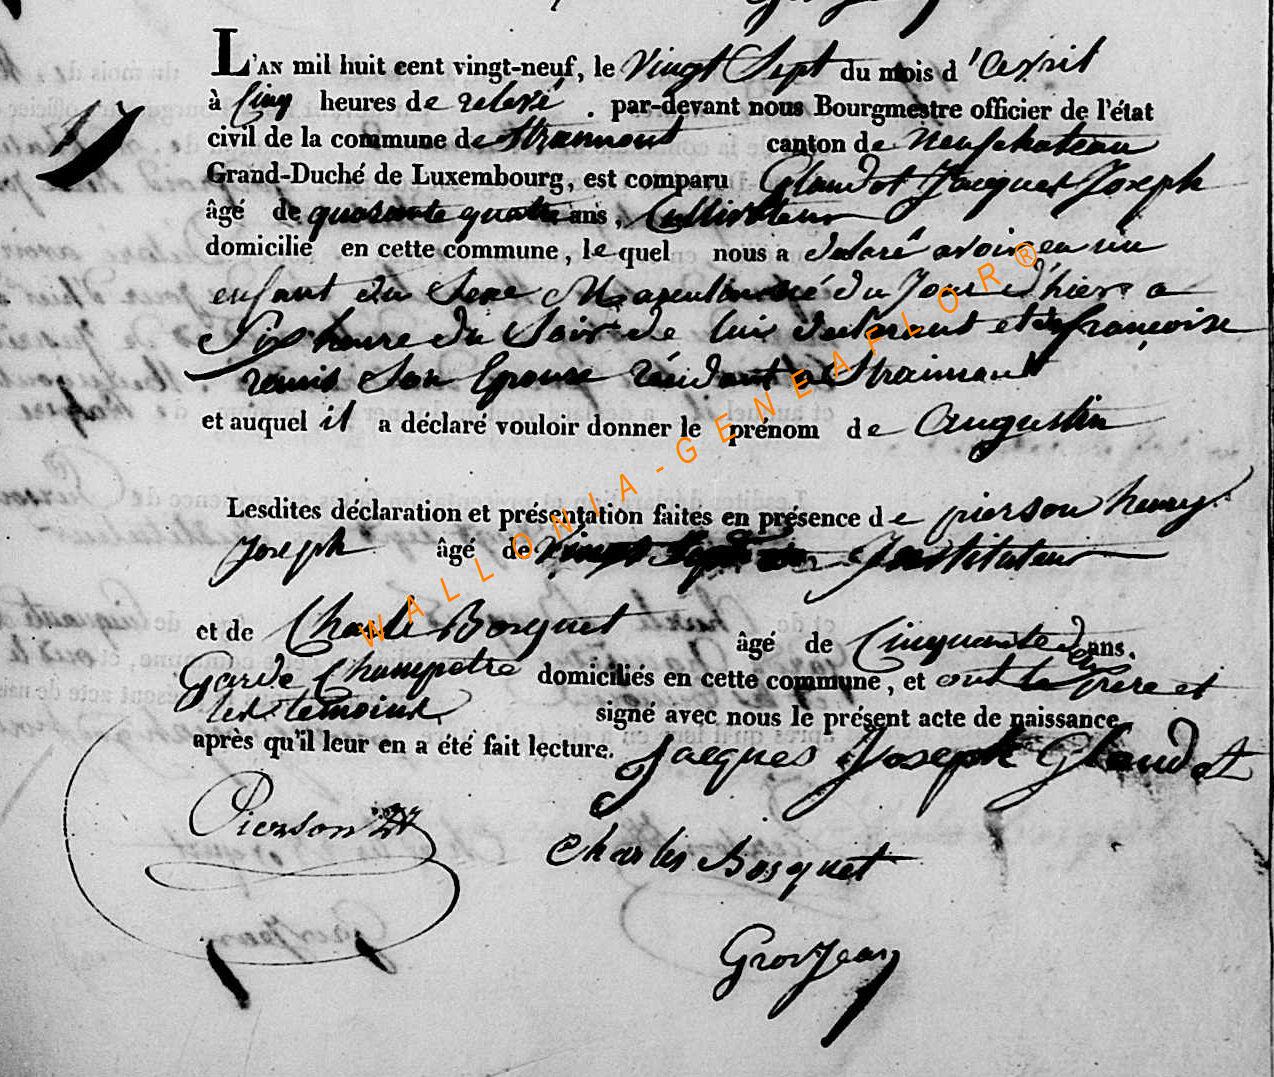 L'AN mil huit cent vingt-neuf, le vingt Sept du mois d'avril
à Cinq heures de relevé. par-devant nous Bourgmestre officier de l'état
civil de la commune de Straimont canton de neufchateau
Grand-Duché de Luxembourg, est comparu Glaudot Jacques Joseph
âgé de quarante quatre ans, Cultivateur
domicilié en cette commune, lequel nous a declaré avoir eu un
enfant du Sexe Masculin né du Jour d'hier a
Six heure du Soir de lui declarant et de françoise
remis Son Epouse résidant a Straimont
et auquel il a déclaré vouloir donner le prénom de Augustin
Lesdites déclaration et présentation faites en présence de pierson henry
Joseph âgé de vingt Sept ans Instituteur
et de Charle Bosquet âgé de Cinquante deux ans.
Garde Champetre domiciliés en cette commune, et ont le père et
les temoins signé avec nous le présent acte de naissance
après qu'il leur en a été fait lecture. Jacques Joseph Glaudot
Pierson
Charles Bosquet
GrosJean
WALLONIA-GENEAFLOR®